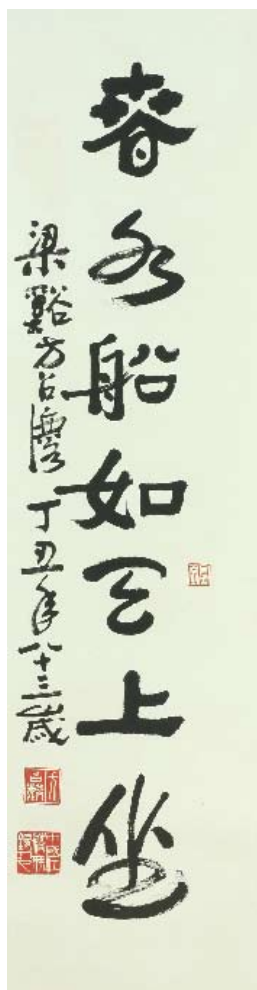 春水船如天上坐
梁谿方召麐丁丑年八十三歲